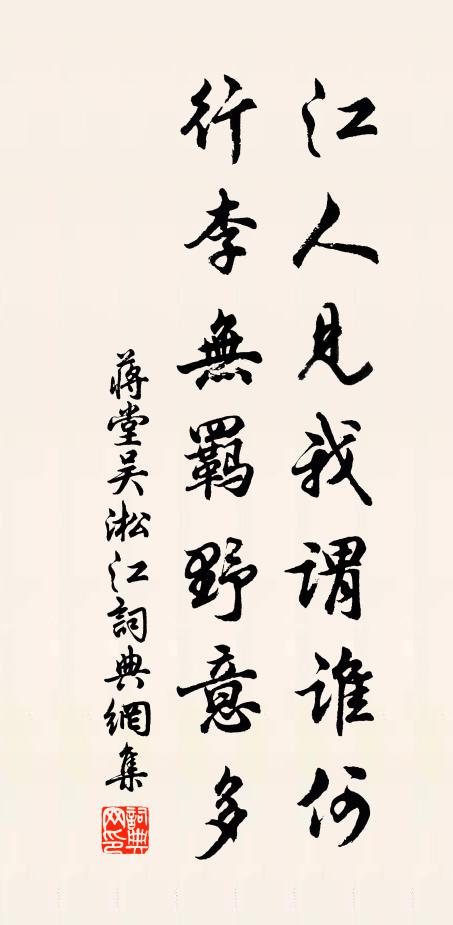 江人見我謂誰何
行李無羈野意多
蔣堂吴淞江詞典網集
詞典网印